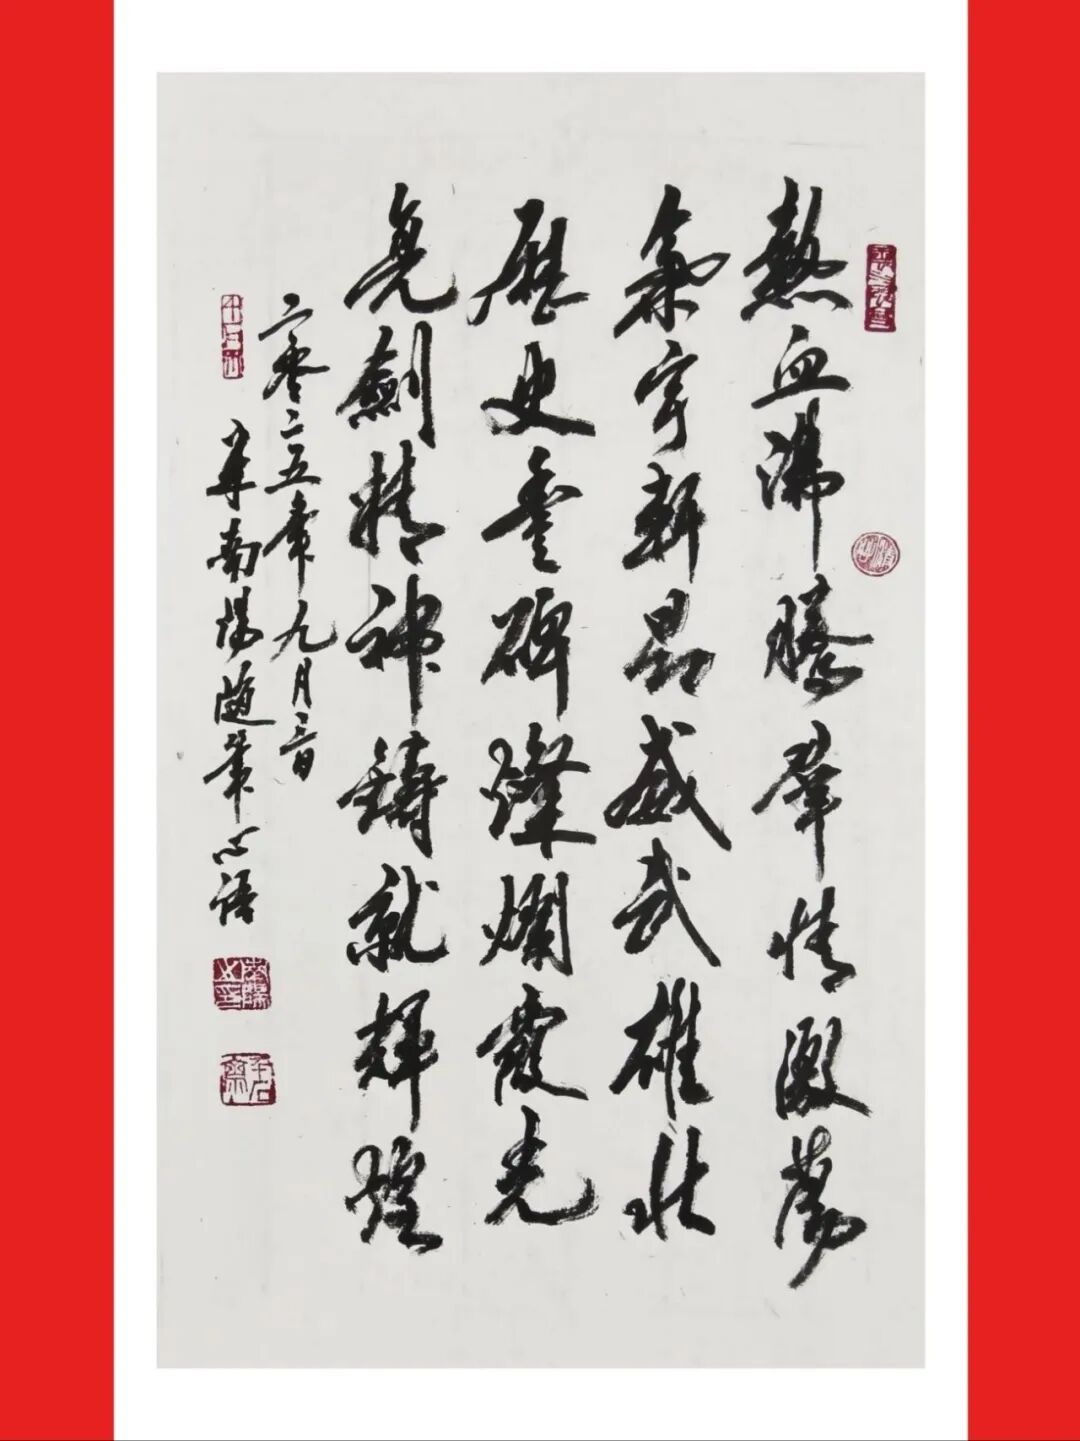 熱血沸騰羣情激蕩
氣宇軒昂威武雄壯
歷史豐碑燦爛霞光
亮劍精神鑄就輝煌
二零二五年九月三日
南陽随筆心語